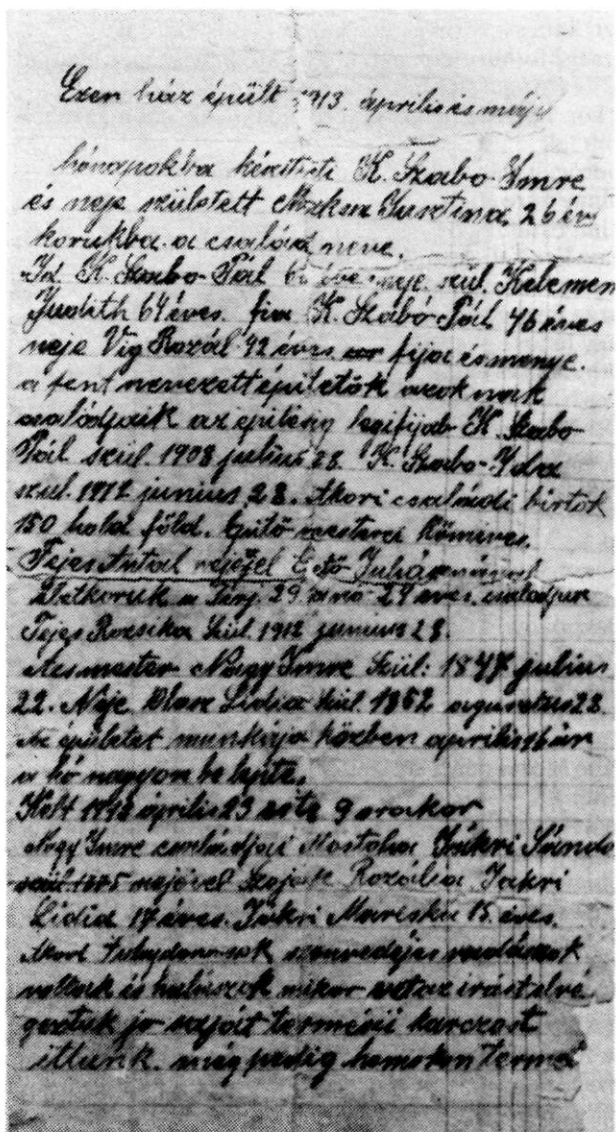 Ezen ház épült 1913. április és május
hónapokba készitteti K. Szabo Imre
és neje született Justina 26 éves
korukba. a család neve.
Id K. Szabo Pál neje szül. Kelemen
Judith 64 éves. fia K. Szabó Pál 46 éves
neje Vig Rozál 42 éves fija és menye.
a fent nevezett épitetők azoknak
családjaik az épitésig legifjab K. Szabo
Pál szül. 1908 julius 28. K. Szabo Ida
szül. 1912 junius 28. Akori családi birtok
150 hold föld. Épitő mesterei Kőmives.
Fejes Antal nejével Ecső
Életkoruk a férj. 29. a nő 24 éves. családjuk
Fejes Rozsika Szül. 1912 junius 28.
Ács mester Nagy Imre Szül: 1847 julius
22. Neje Lidia Szül. 1862 augusztus 28
Az épületet munkája közben április 16 án
a hó nagyon be lepte.
Kelt 1913 április 23 este 9 orakor
Nagy Imre családjai Mostoha Jakri Sándor
szül 1885 nejével Rozália Jakri
Lidia 17 éves. Jakri Mariska 15 éves.
Akori szenvedéjes vadászok
voltunk és halászok mikor ezt az irást elvé
geztük jo saját termésü karczost
ittunk. még pedig homokon termet